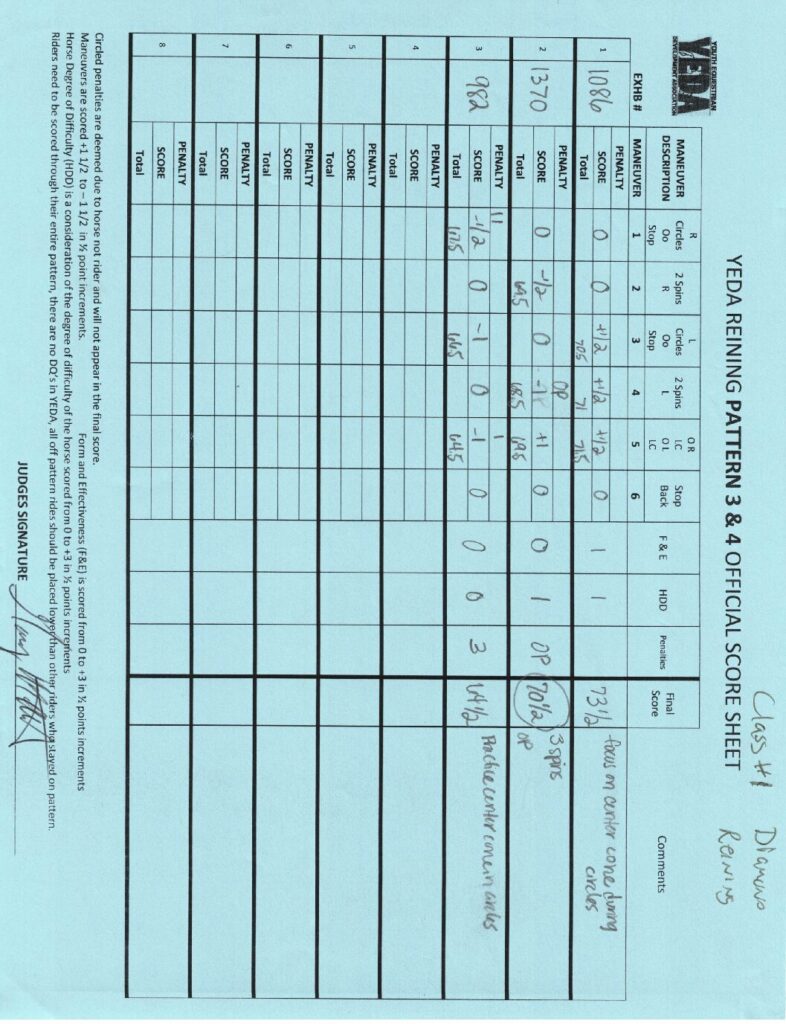 Class #1 Diamond
Reining
YOUTH EQUESTRIAN
YEDA
DEVELOPMENT ASSOCIATION
YEDA REINING PATTERN 3 & 4 OFFICIAL SCORE SHEET
MANEUVER DESCRIPTION R Circles Oo Stop 2 Spins R L Circles Oo Stop 2 Spins L O R LC O L LC Stop Back F & E HDD Penalties Final Score Comments
EXHB # MANEUVER 1 2 3 4 5 6
1 1086 PENALTY
SCORE 0 0 +1/2 +1/2 +1/2 0 1 1 73 1/2 focus on center cone during circles
Total 70.5 71 71.5
2 1370 PENALTY OP
SCORE 0 -1/2 0 -1 +1 0 0 1 OP 70 1/2 3 spins
Total 69.5 68.5 69.5 OP
3 982 PENALTY 11 1
SCORE -1/2 0 -1 0 -1 0 0 0 3 64 1/2 Practice center cone in circles
Total 67.5 66.5 64.5
4 PENALTY
SCORE
Total
5 PENALTY
SCORE
Total
6 PENALTY
SCORE
Total
7 PENALTY
SCORE
Total
8 PENALTY
SCORE
Total
Circled penalties are deemed due to horse not rider and will not appear in the final score.
Maneuvers are scored +1 1/2 to – 1 1/2 in ½ point increments. Form and Effectiveness (F&E) is scored from 0 to +3 in ½ points increments
Horse Degree of Difficulty (HDD) is a consideration of the degree of difficulty of the horse scored from 0 to +3 in ½ points increments
Riders need to be scored through their entire pattern, there are no DQ's in YEDA, all off pattern rides should be placed lower than other riders who stayed on pattern.
JUDGES SIGNATURE